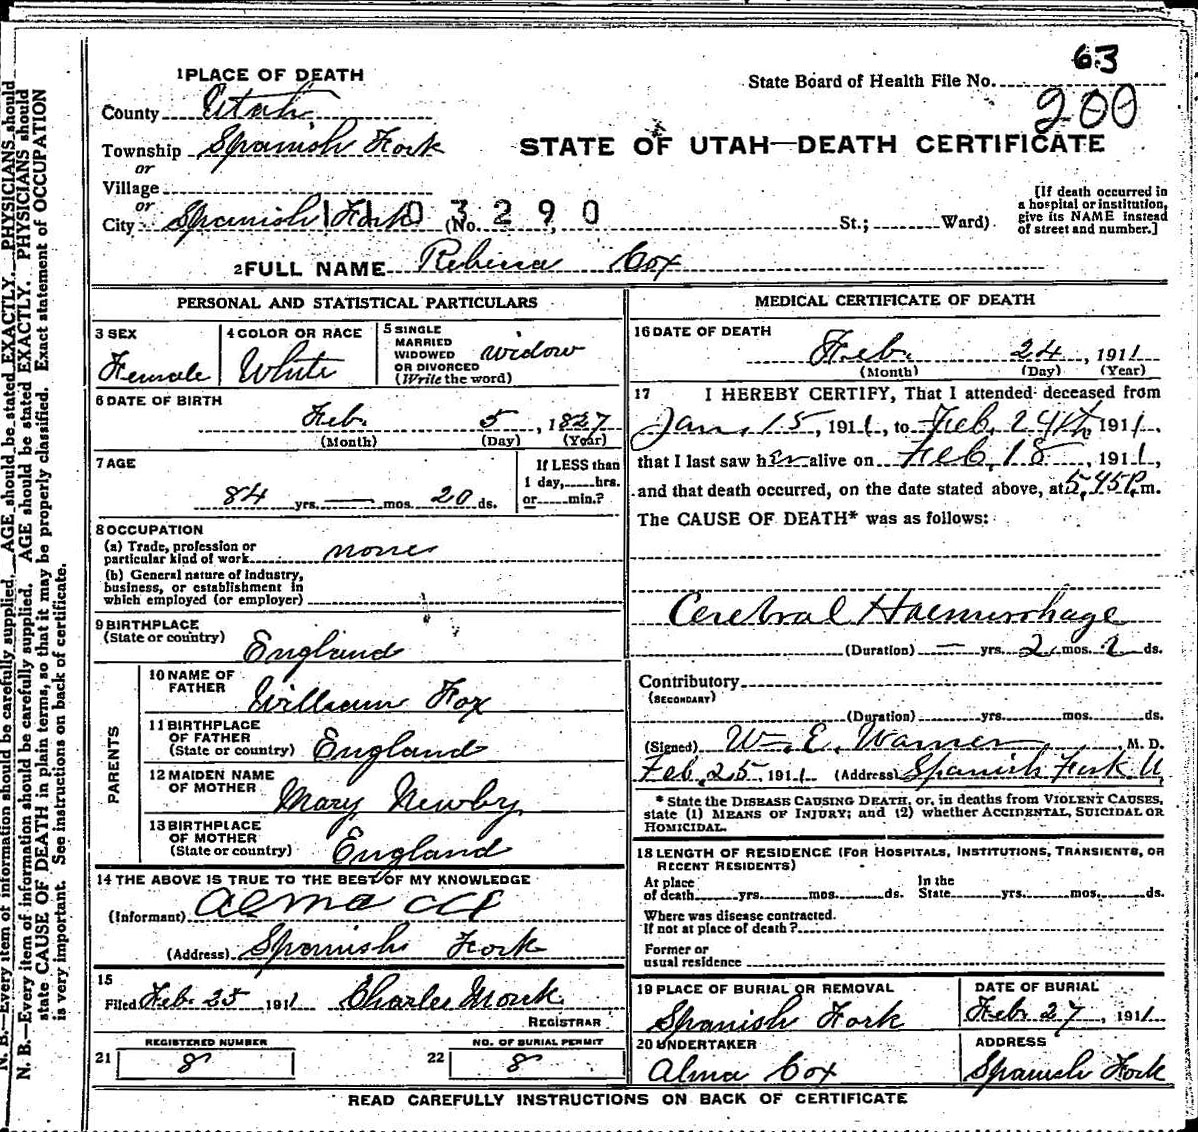 63
State Board of Health File No.
200
STATE OF UTAH—DEATH CERTIFICATE
1 PLACE OF DEATH
County Utah
Township Spanish Fork
or
Village
or
City Spanish Fork (No. St.; Ward)
1103290
[If death occurred in
a hospital or institution,
give its NAME instead
of street and number.]
2 FULL NAME Rebina Cox
PERSONAL AND STATISTICAL PARTICULARS
3 SEX
Female
4 COLOR OR RACE
White
5 SINGLE
MARRIED
WIDOWED
OR DIVORCED
(Write the word)
widow
6 DATE OF BIRTH
Feb. 5, 1827
(Month) (Day) (Year)
7 AGE
84 yrs. — mos. 20 ds.
If LESS than
1 day, hrs.
or min.?
8 OCCUPATION
(a) Trade, profession or
particular kind of work none
(b) General nature of industry,
business, or establishment in
which employed (or employer)
9 BIRTHPLACE
(State or country)
England
PARENTS
10 NAME OF
FATHER
William Fox
11 BIRTHPLACE
OF FATHER
(State or country) England
12 MAIDEN NAME
OF MOTHER
Mary Newby
13 BIRTHPLACE
OF MOTHER
(State or country) England
14 THE ABOVE IS TRUE TO THE BEST OF MY KNOWLEDGE
(Informant) Alma
(Address) Spanish Fork
15
Filed Feb. 25, 1911 Charles Monk
REGISTRAR
REGISTERED NUMBER
21 8
NO. OF BURIAL PERMIT
22 8
MEDICAL CERTIFICATE OF DEATH
16 DATE OF DEATH
Feb. 24, 1911
(Month) (Day) (Year)
17 I HEREBY CERTIFY, That I attended deceased from
Jan. 15, 1911, to Feb. 24th, 1911,
that I last saw her alive on Feb. 18, 1911,
and that death occurred, on the date stated above, at 5,45 P. m.
The CAUSE OF DEATH* was as follows:
Cerebral Haemorrhage
(Duration) — yrs. 2 mos. 2 ds.
Contributory
(SECONDARY)
(Duration) yrs. mos. ds.
(Signed) W. E. Warner, M. D.
Feb. 25, 1911 (Address) Spanish Fork U
* State the DISEASE CAUSING DEATH, or, in deaths from VIOLENT CAUSES,
state (1) MEANS OF INJURY; and (2) whether ACCIDENTAL, SUICIDAL OR
HOMICIDAL.
18 LENGTH OF RESIDENCE (FOR HOSPITALS, INSTITUTIONS, TRANSIENTS, OR
RECENT RESIDENTS)
At place
of death yrs. mos. ds.
In the
State yrs. mos. ds.
Where was disease contracted.
If not at place of death?
Former or
usual residence
19 PLACE OF BURIAL OR REMOVAL
Spanish Fork
DATE OF BURIAL
Feb. 27, 1911
20 UNDERTAKER
Alma Cox
ADDRESS
Spanish Fork
READ CAREFULLY INSTRUCTIONS ON BACK OF CERTIFICATE
N. B.—Every item of information should be carefully supplied. AGE should be stated EXACTLY. PHYSICIANS should
N. B.—Every item of information should be carefully supplied. AGE should be stated EXACTLY. PHYSICIANS should
state CAUSE OF DEATH in plain terms, so that it may be properly classified. Exact statement of OCCUPATION
is very important. See instructions on back of certificate.